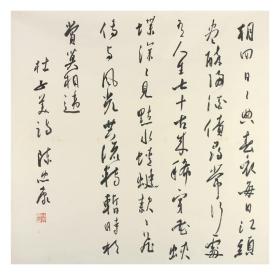 朝回日日典春衣每日江頭
盡醉歸酒債尋常行處
有人生七十古来稀穿花蛱
蝶深深見點水蜻蜓款款飛
傳与風光共流轉暫時相
賞莫相違
杜子美詩 陈康